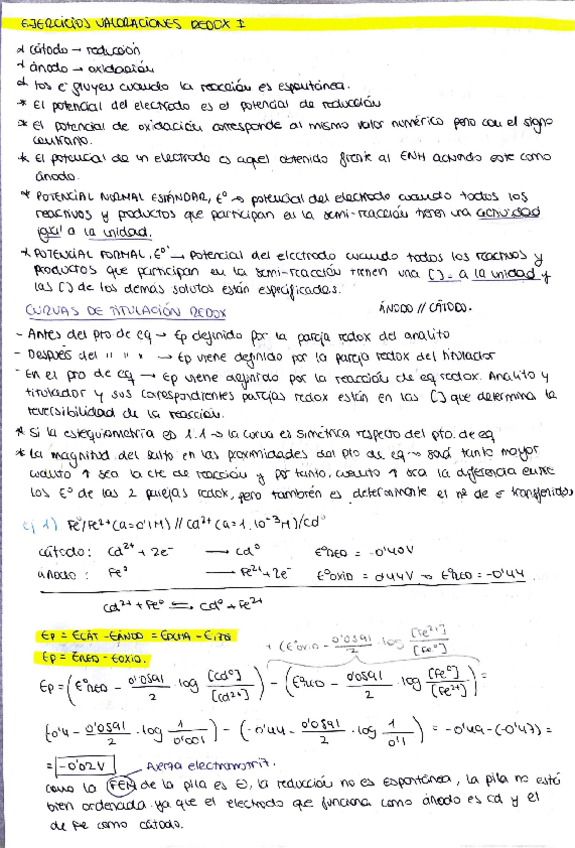 EJERCICIOS VALORACIONES REDOX I
* cátodo → reducción
* ánodo → oxidación
* los e⁻ fluyen cuando la reacción es espontánea.
* El potencial del electrodo es el potencial de reducción
* El potencial de oxidación corresponde al mismo valor numérico pero con el signo
contrario.
* El potencial de un electrodo es aquel obtenido frente al ENH actuando este como
ánodo.
* POTENCIAL NORMAL ESTÁNDAR, E° → potencial del electrodo cuando todos los
reactivos y productos que participan en la semi-reacción tienen una actividad
igual a la unidad.
* POTENCIAL FORMAL, E°' → Potencial del electrodo cuando todos los reactivos y
productos que participan en la semi-reacción tienen una [ ] = a la unidad y
las [ ] de los demás solutos están especificadas.
CURVAS DE TITULACIÓN REDOX ÁNODO // CÁTODO.
- Antes del pto de eq → Ep definido por la pareja redox del analito
- Después del " " " → Ep viene definido por la pareja redox del titulador
- En el pto de eq → Ep viene definido por la reacción de eq redox. Analito y
titulador y sus correspondientes parejas redox están en las [ ] que determina la
reversibilidad de la reacción.
* Si la estequiometría es 1:1 → la curva es simétrica respecto del pto. de eq
* La magnitud del salto en las proximidades del pto de eq → será tanto mayor
cuanto ↑ sea la cte de reacción y por tanto, cuanto ↑ sea la diferencia entre
los E° de las 2 parejas redox, pero también es determinante el nº de e⁻ transferidos
ej 1) Fe°/Fe²⁺ (a=0'1M) // Cd²⁺ (a=1·10⁻³M)/Cd°
cátodo: Cd²⁺ + 2e⁻ → Cd° E°RED = -0'40V
ánodo: Fe° → Fe²⁺ + 2e⁻ E°OXID = 0'44V → E°RED = -0'44
Cd²⁺ + Fe° ⇌ Cd° + Fe²⁺
EP = ECÁT - EÁNDO = EDCHA - EIZQ
EP = ERED - EOXID.
+ (E°OXID - 0'0591/2 · log [Fe²⁺]/[Fe°])
EP = (E°RED - 0'0591/2 · log [Cd°]/[Cd²⁺]) - (E°RED - 0'0591/2 · log [Fe°]/[Fe²⁺]) =
(0'4 - 0'0591/2 · log 1/0'001) - (-0'44 - 0'0591/2 · log 1/0'1) = -0'49 - (-0'47) =
= -0'02V Fuerza electromotriz.
como la FEM de la pila es ⊖, la reducción no es espontánea, la pila no está
bien ordenada ya que el electrodo que funciona como ánodo es Cd y el
de Fe como cátodo.